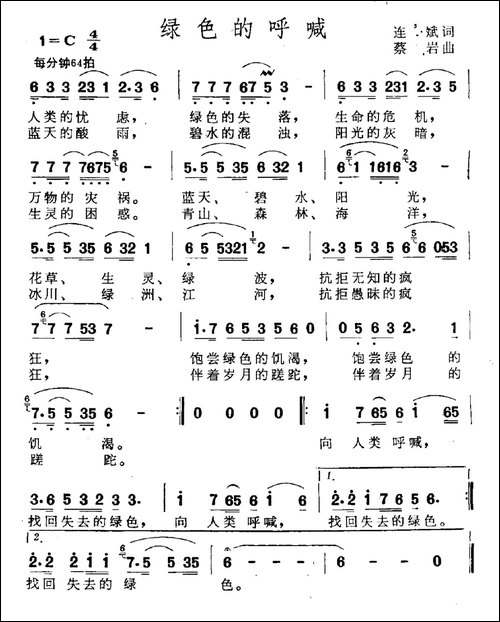 绿色的呼喊
1=C 4/4
连 斌词
每分钟64拍
蔡 岩曲
6 3 3 23 1 2·3 6 7 7 7 67 5 3 · 6 3 3 231 2·3 5
人类的忧虑， 绿色的失落， 生命的危机，
蓝天的酸雨， 碧水的混浊， 阳光的灰暗，
7 7 7 7675 6 - 5·5 5 35 6 32 1 6 1 1616 3 -
万物的灾祸。 蓝天、碧水、阳光，
生灵的困惑。 青山、森林、海洋，
5·5 5 35 6 32 1 6 5 5321 2 - 3·3 5 3 5 6 6 053
花草、生灵、绿波， 抗拒无知的疯
冰川、绿洲、江河， 抗拒愚昧的疯
7 7 7 53 7 - i·7 6 5 3 5 6 0 0 5 6 3 2· 1
狂， 饱尝绿色的饥渴， 饱尝绿色的
狂， 伴着岁月的蹉跎， 伴着岁月的
7·5 5 35 6 - 0 0 0 0 i 7 65 6 i 65
饥渴。 向人类呼喊，
蹉跎。
3·6 5 3 2 3 3· i 7 65 6 i 6 2·2 i 7 6 5 6·
找回失去的绿色， 向人类呼喊， 找回失去的绿色。
2·2 2 i i 7·5 5 35 6 - - - 6 - 6 0
找回失去的绿色。